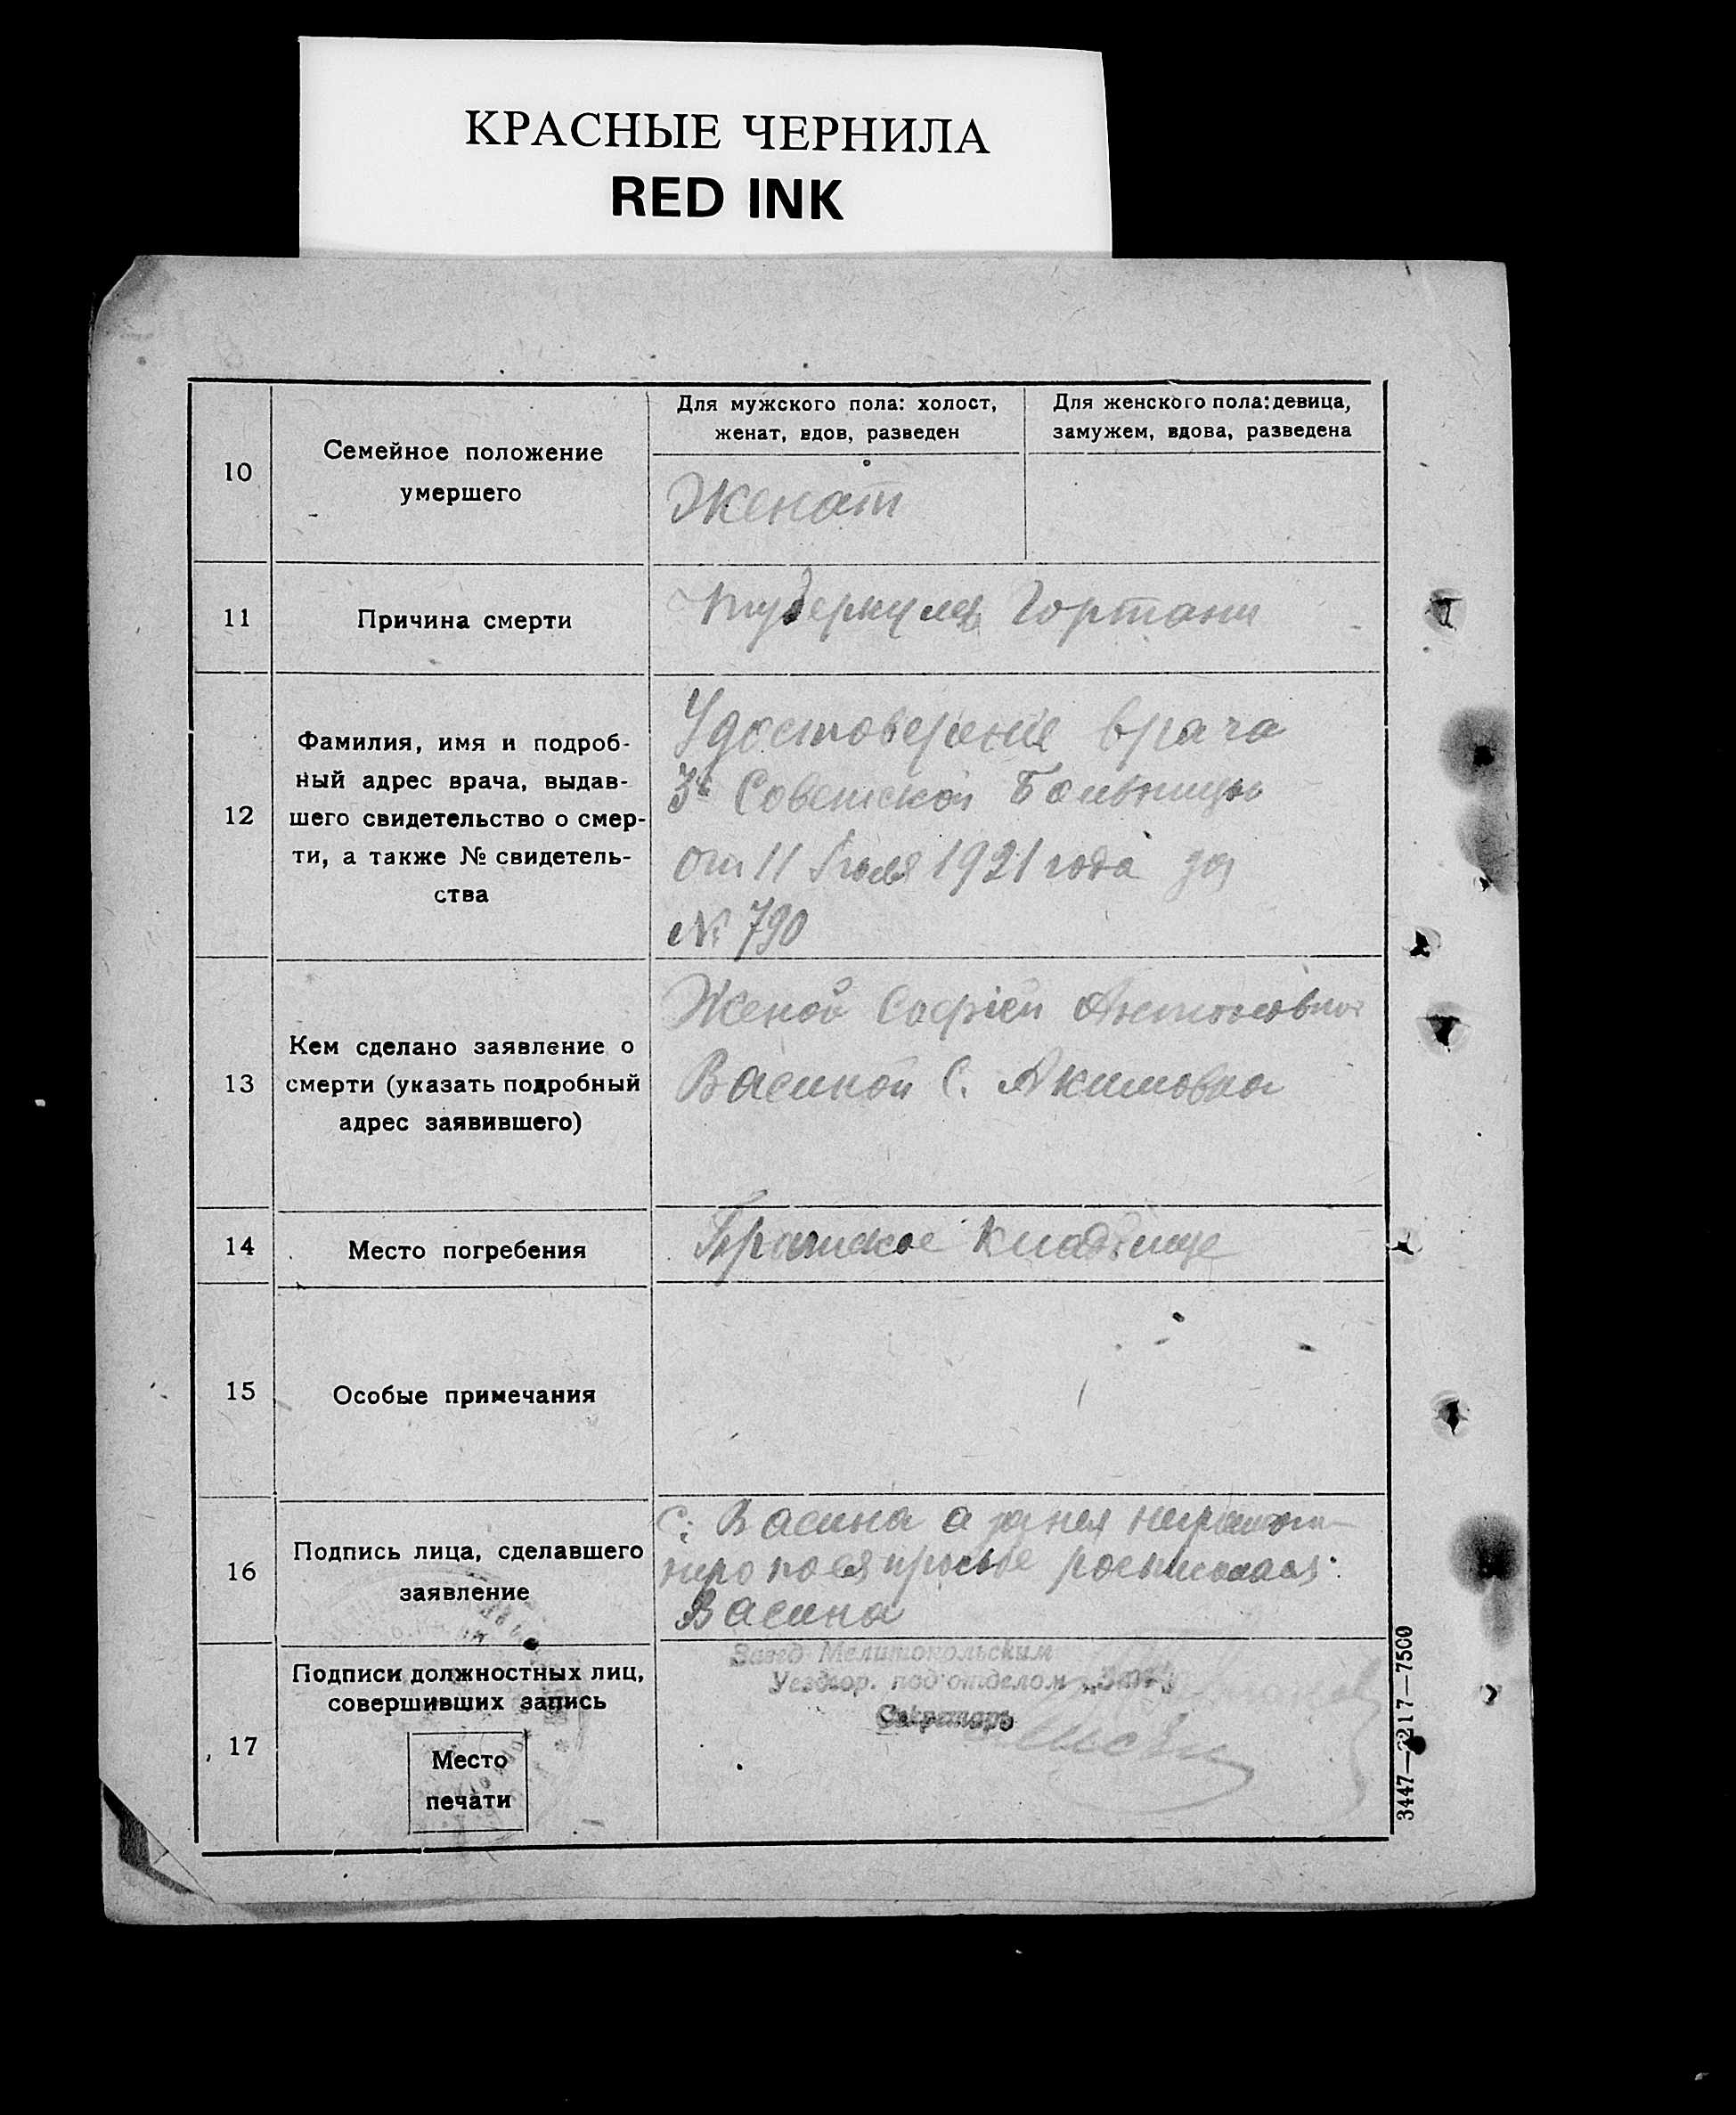 КРАСНЫЕ ЧЕРНИЛА
RED INK
Для мужского пола: холост,
женат, вдов, разведен
Для женского пола: девица,
замужем, вдова, разведена
10
Семейное положение
умершего
Женат
11
Причина смерти
туберкулез Гортани
12
Фамилия, имя и подроб-
ный адрес врача, выдав-
шего свидетельство о смер-
ти, а также № свидетель-
ства
Удостоверение врача
3й Советской Больницы
от 11 Июля 1921 года за
№ 790
13
Кем сделано заявление о
смерти (указать подробный
адрес заявившего)
Женой Софіей Антоновной
Васиной С. Акимовка
14
Место погребения
Братское Кладбище
15
Особые примечания
16
Подпись лица, сделавшего
заявление
С. Васина а за нея неграмот-
по ея просьбе
Васина
17
Подписи должностных лиц,
совершивших запись
Завед Мелитопольским
Уездгор. подотделом „Загс"
Секретарь
Место
печати
3447—2217—7500